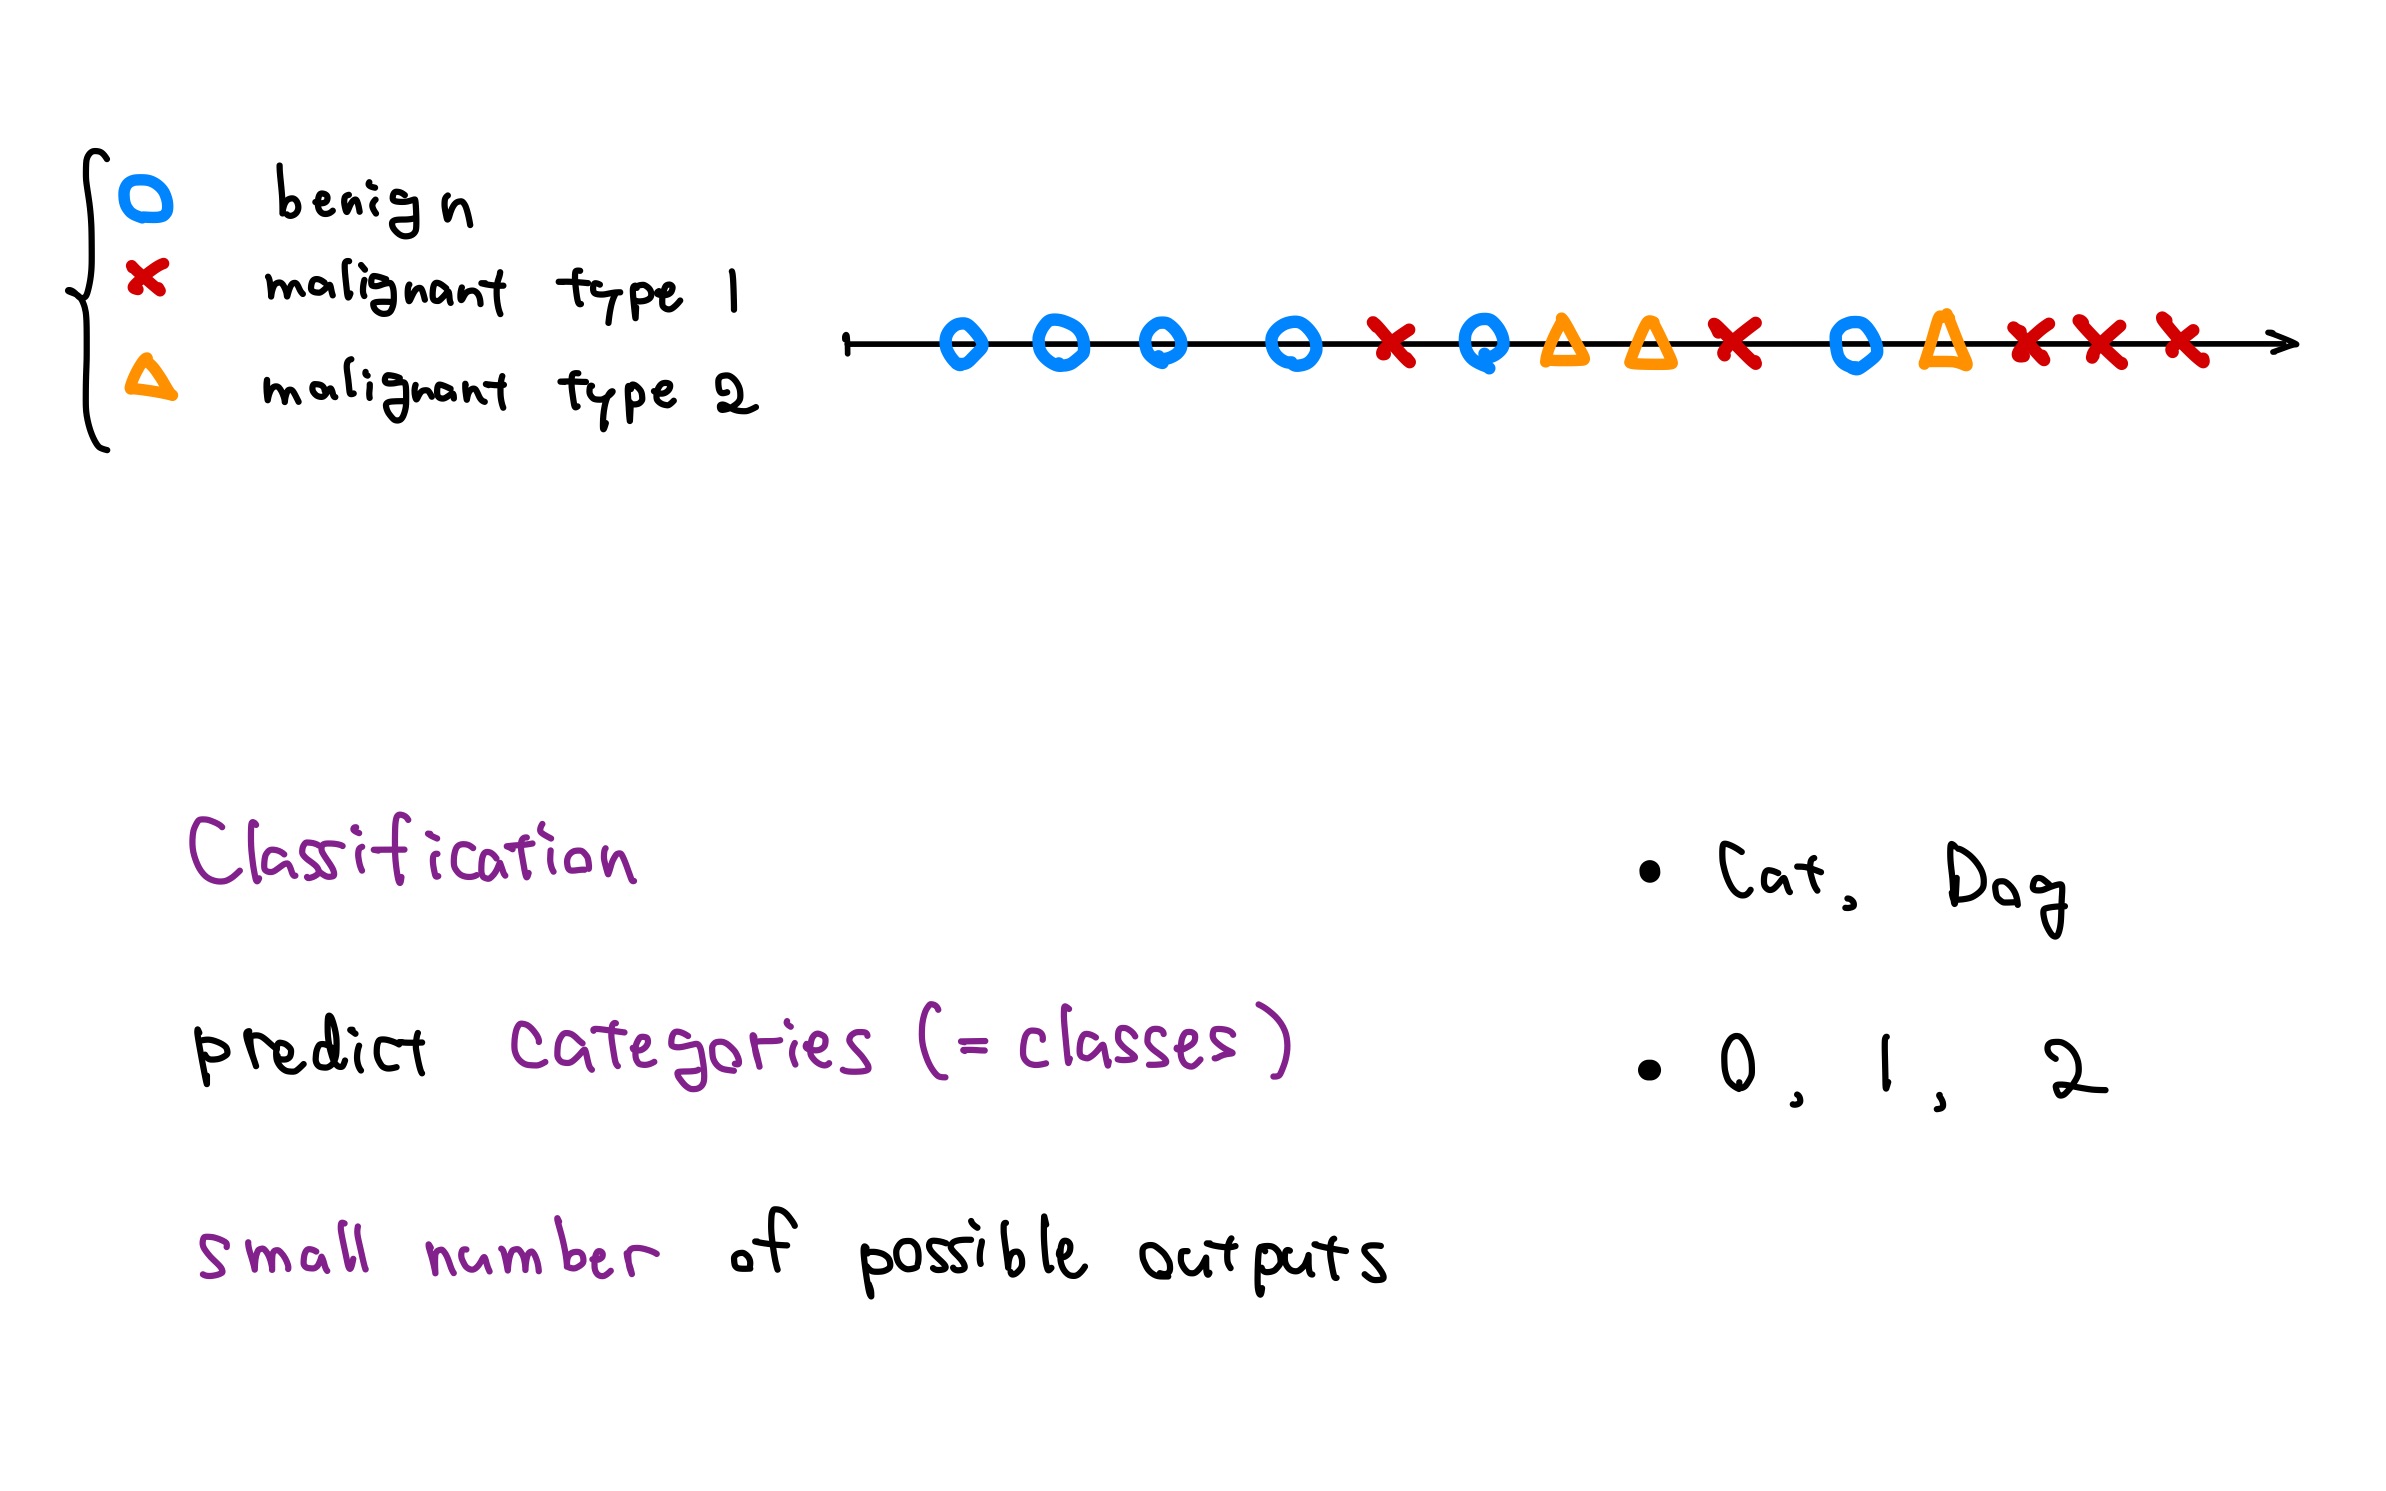 benign
malignant type 1
malignant type 2
Clasification
predict categories (= classes)
small number of possible outputs
• Cat, Dog
• 0, 1, 2